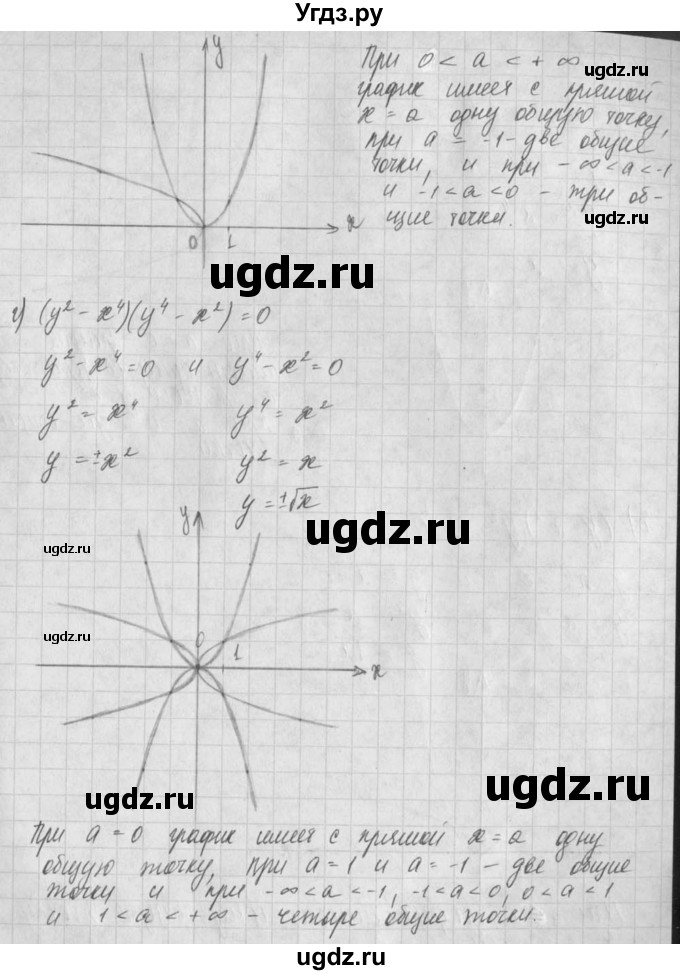 Угдз.ру
При 0 < a < + ∞
график имеет с прямой
x = a одну общую точку,
при a = -1 - две общие
точки, и при - ∞ < a < -1
и -1 < a < 0 - три об-
щие точки.
y
x
0
1
ugdz.ru
ugdz.ru
ugdz.ru
ugdz.ru
ugdz.ru
г) (y² - x⁴)(y⁴ - x²) = 0
y² - x⁴ = 0 и y⁴ - x² = 0
y² = x⁴ y⁴ = x²
y = ±x² y² = x
y = ±√x
ugdz.ru
ugdz.ru
ugdz.ru
y
0
1
x
ugdz.ru
ugdz.ru
При a = 0 график имеет с прямой x = a одну
общую точку, при a = 1 и a = -1 - две общие
точки и при - ∞ < a < -1, -1 < a < 0, 0 < a < 1
и 1 < a < + ∞ - четыре общие точки.
ugdz.ru
ugdz.ru